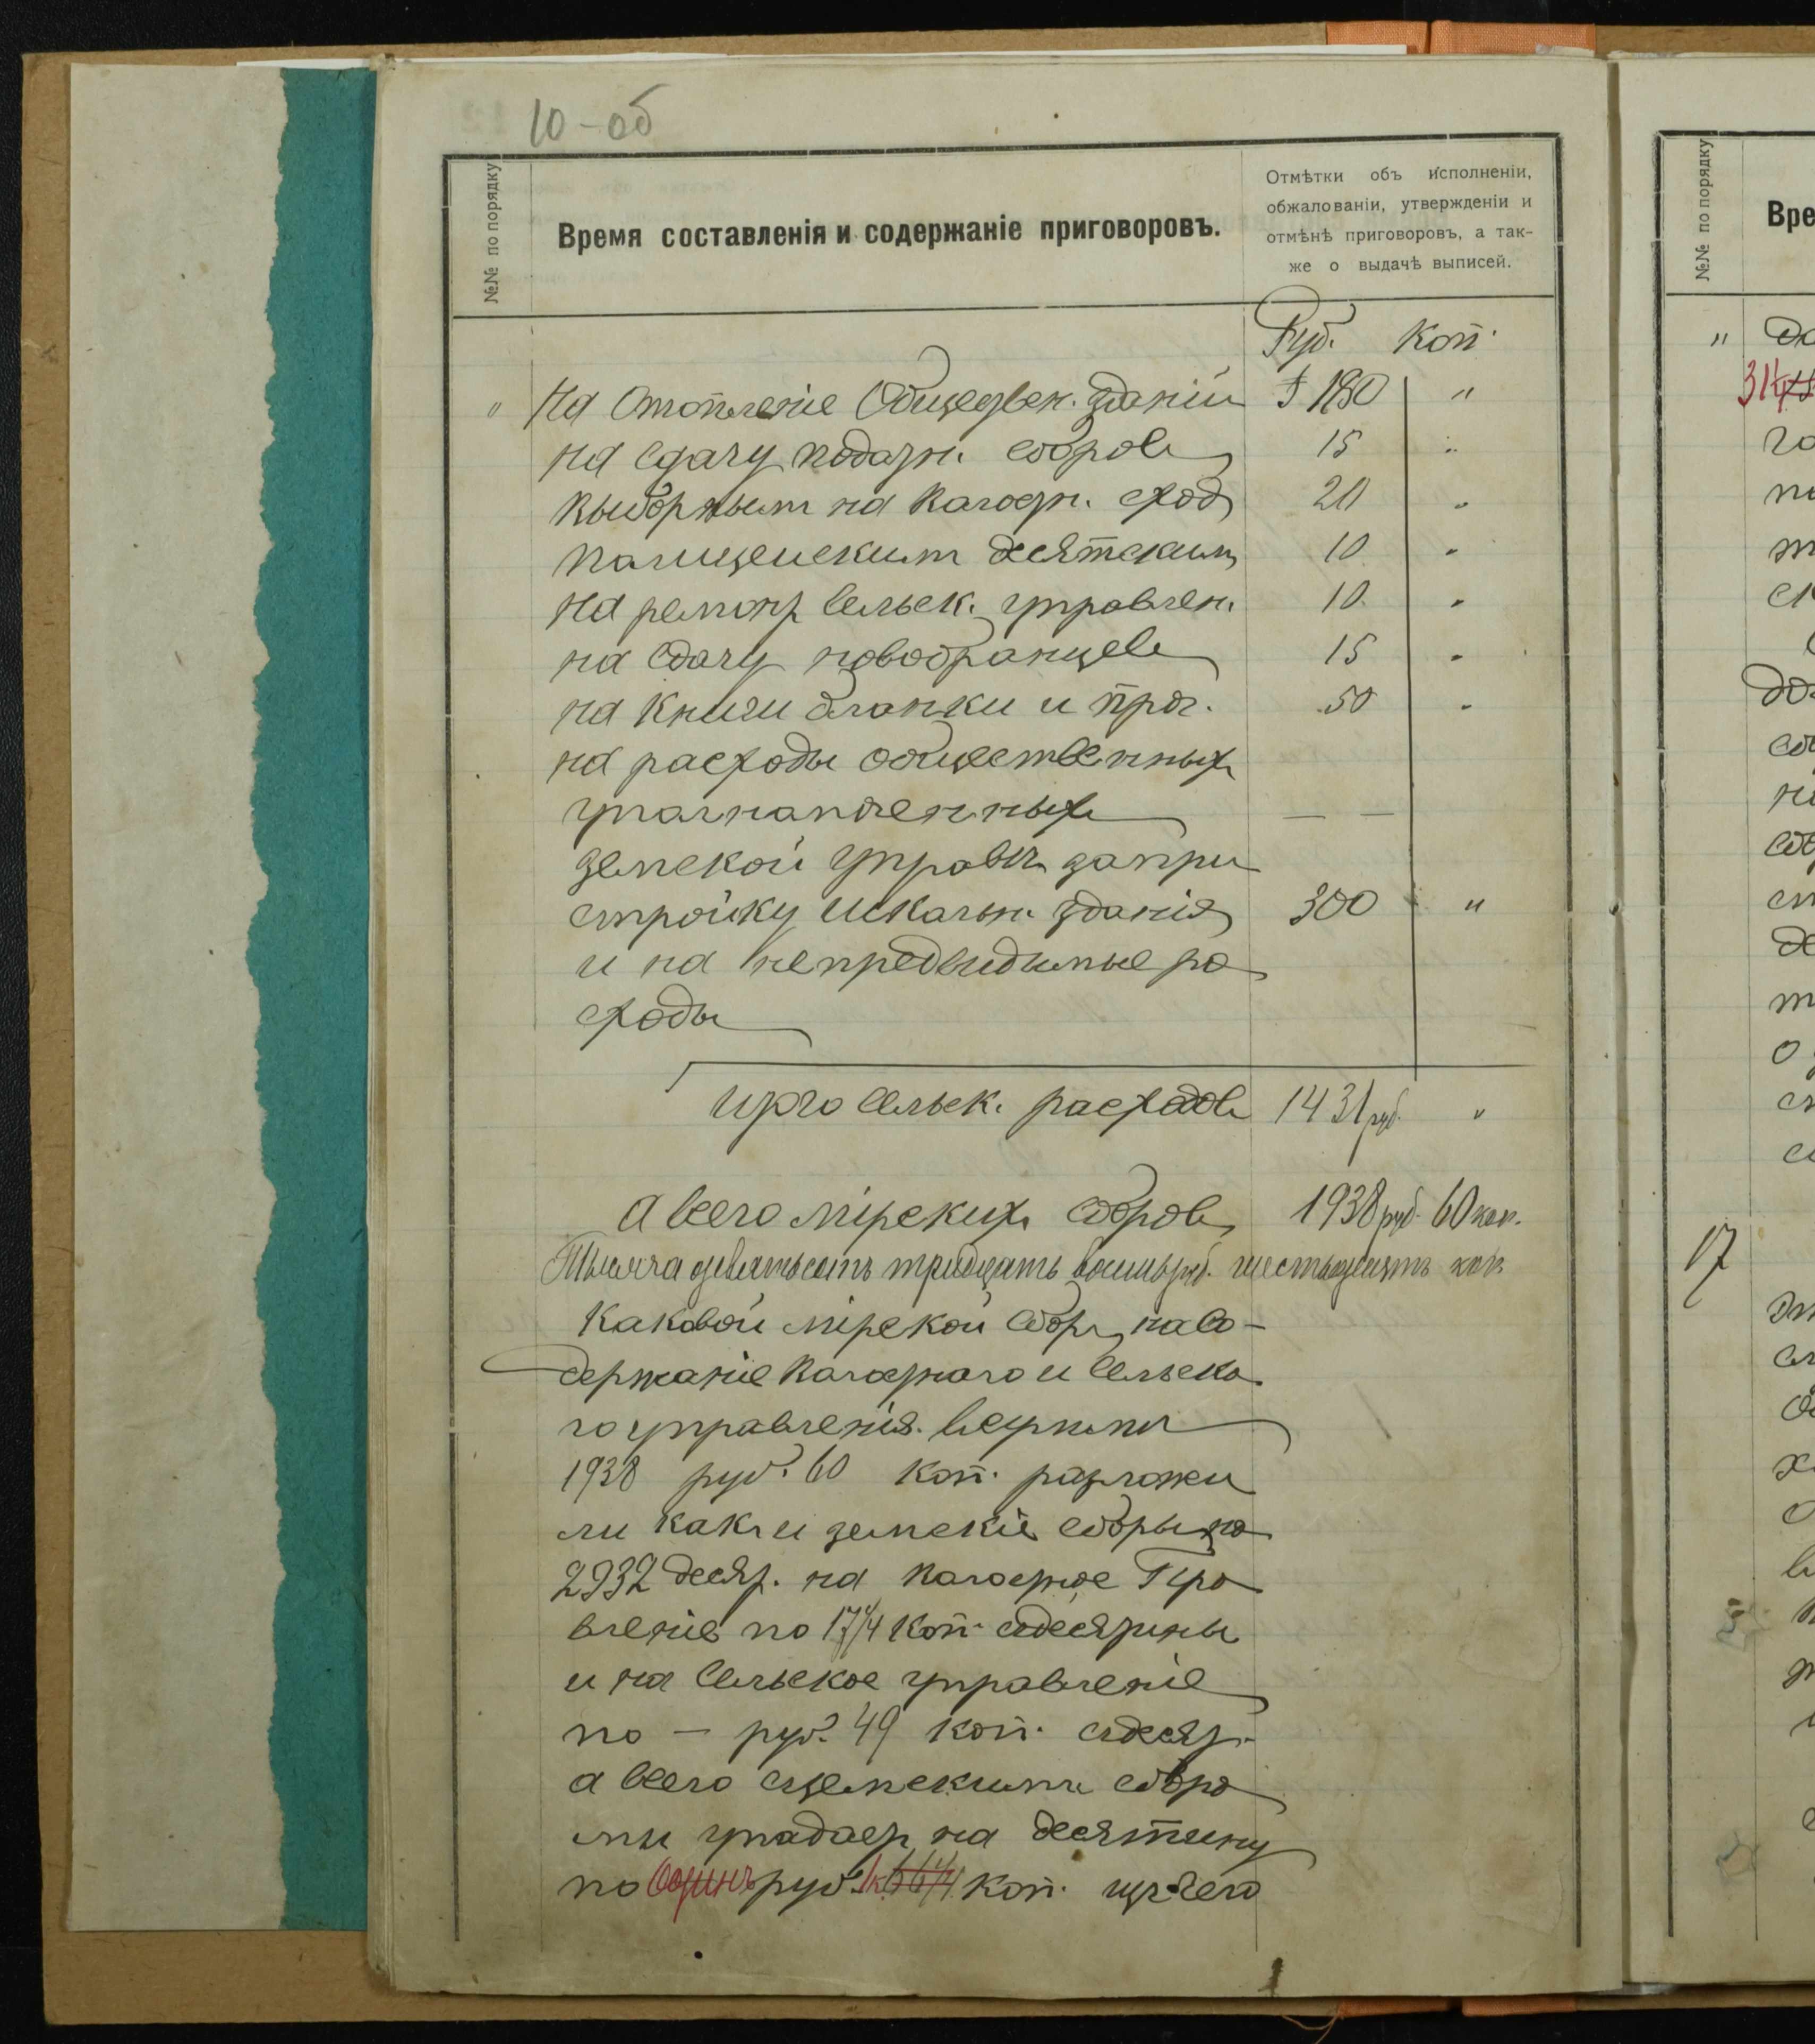 10-об
№№ по порядку
Время составленія и содержаніе приговоровъ.
Отмѣтки объ исполненіи,
обжалованіи, утвержденіи и
отмѣнѣ приговоровъ, а так-
же о выдачѣ выписей.
Руб. Коп.
" на Отопленіе Обществен. зданій 180 "
на сдачу податн. сборовъ 15 "
выборным на волостн. сход 20 "
полицейским десятским 10 "
на ремонт сельск. управлен. 10 "
на сдачу новобранцевъ 15 "
на книги бланки и проч. 50 "
на расходы общественныхъ
уполномоченныхъ — —
земской управѣ за при
стройку школьн. зданія 300 "
и на непредвидимые ра
сходы
итого сельск. расходовъ 1431 руб. "
а всего мірскихъ сборовъ 1938 руб. 60 коп.
Тысяча девятьсотъ тридцать восемь руб. шестьдесятъ коп.
каковой мірской сборъ на со-
держаніе волостного и сельска
го управленія. в суммѣ
1938 руб. 60 коп. разложи
ли какъ и земскіе сборы на
2932 десят. на волостное Пра
вленіе по 17 1/4 коп. съ десятины
и на сельское управленіе
по — руб. 49 коп. съ десят.
а всего съ земскими сбора
ми упадает на десятину
по Один руб. 1 к. коп. изъ чего
№№ по порядку
Вре
"
17